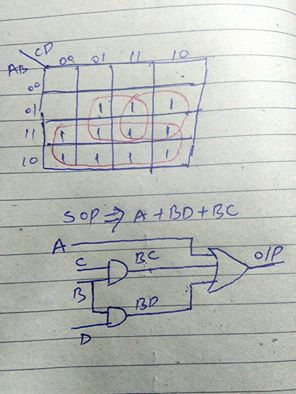 CD
AB 00 01 11 10
00
01 1 1 1
11 1 1 1 1
10 1 1 1 1
SOP ⇒ A + BD + BC
A
C BC O/P
B BD
D